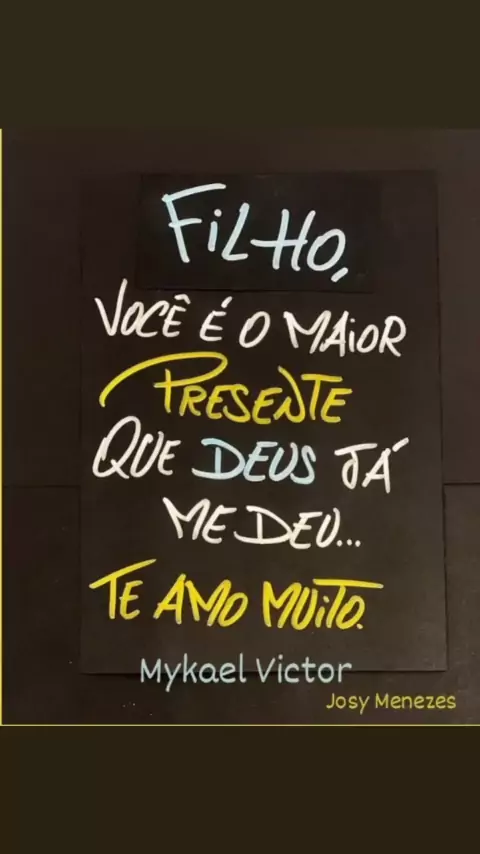 FiLHO,
VOCÊ É O MAiOR
PRESENTE
QUE DEUS JÁ
ME DEU...
TE AMO MUiTO.
Mykael Victor
Josy Menezes